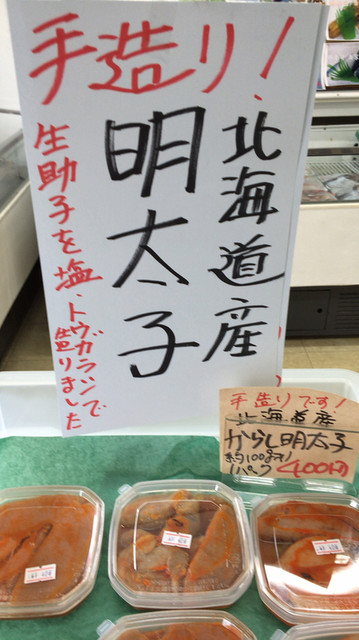 手造り!
北海道産
明太子
生助子を塩・トウガラシで
造りました
手造りです!
北海道産
からし明太子
約100g入り
1パック400円